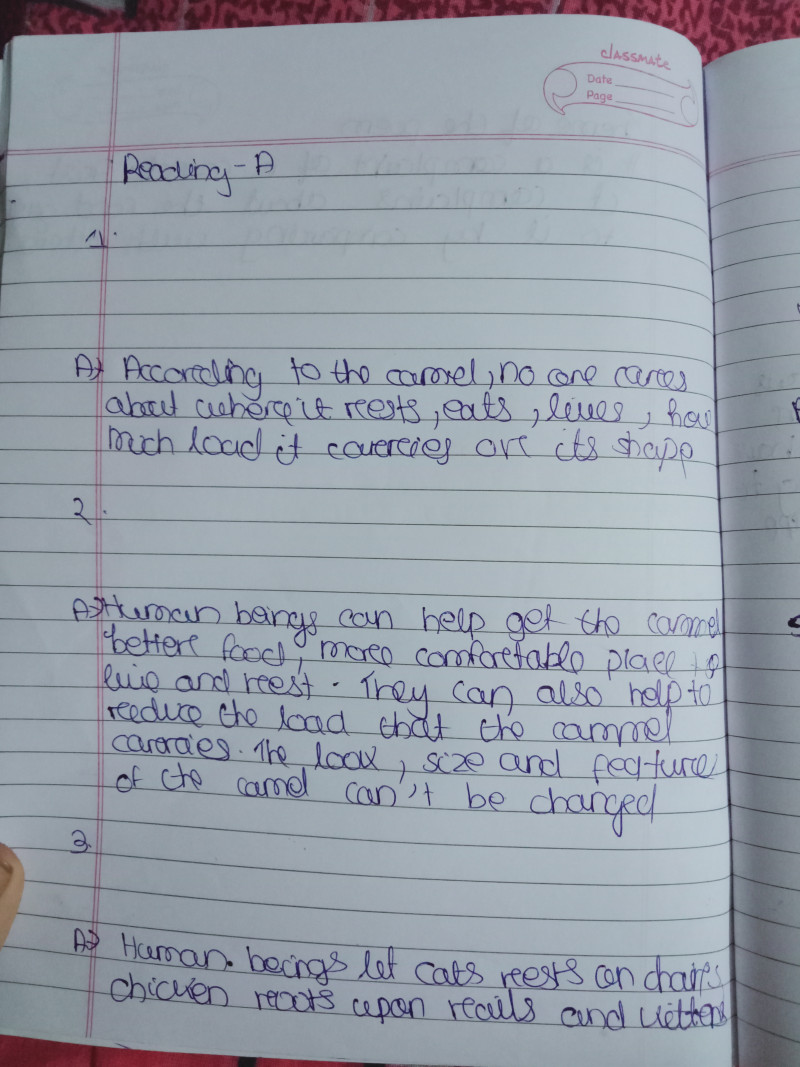 classmate
Date
Page
Reading - A
1.
A) According to the camel, no one cares
about where it rests, eats, lives, how
much load it carries or its shape
2.
A) Human beings can help get the cammel
better food, more comfortable place to
live and rest. They can also help to
reduce the load that the cammel
cararies. The look, size and feature
of the camel can't be changed
3.
A) Human beings let cats rests on chairs
chicken roots upon rails and kittens